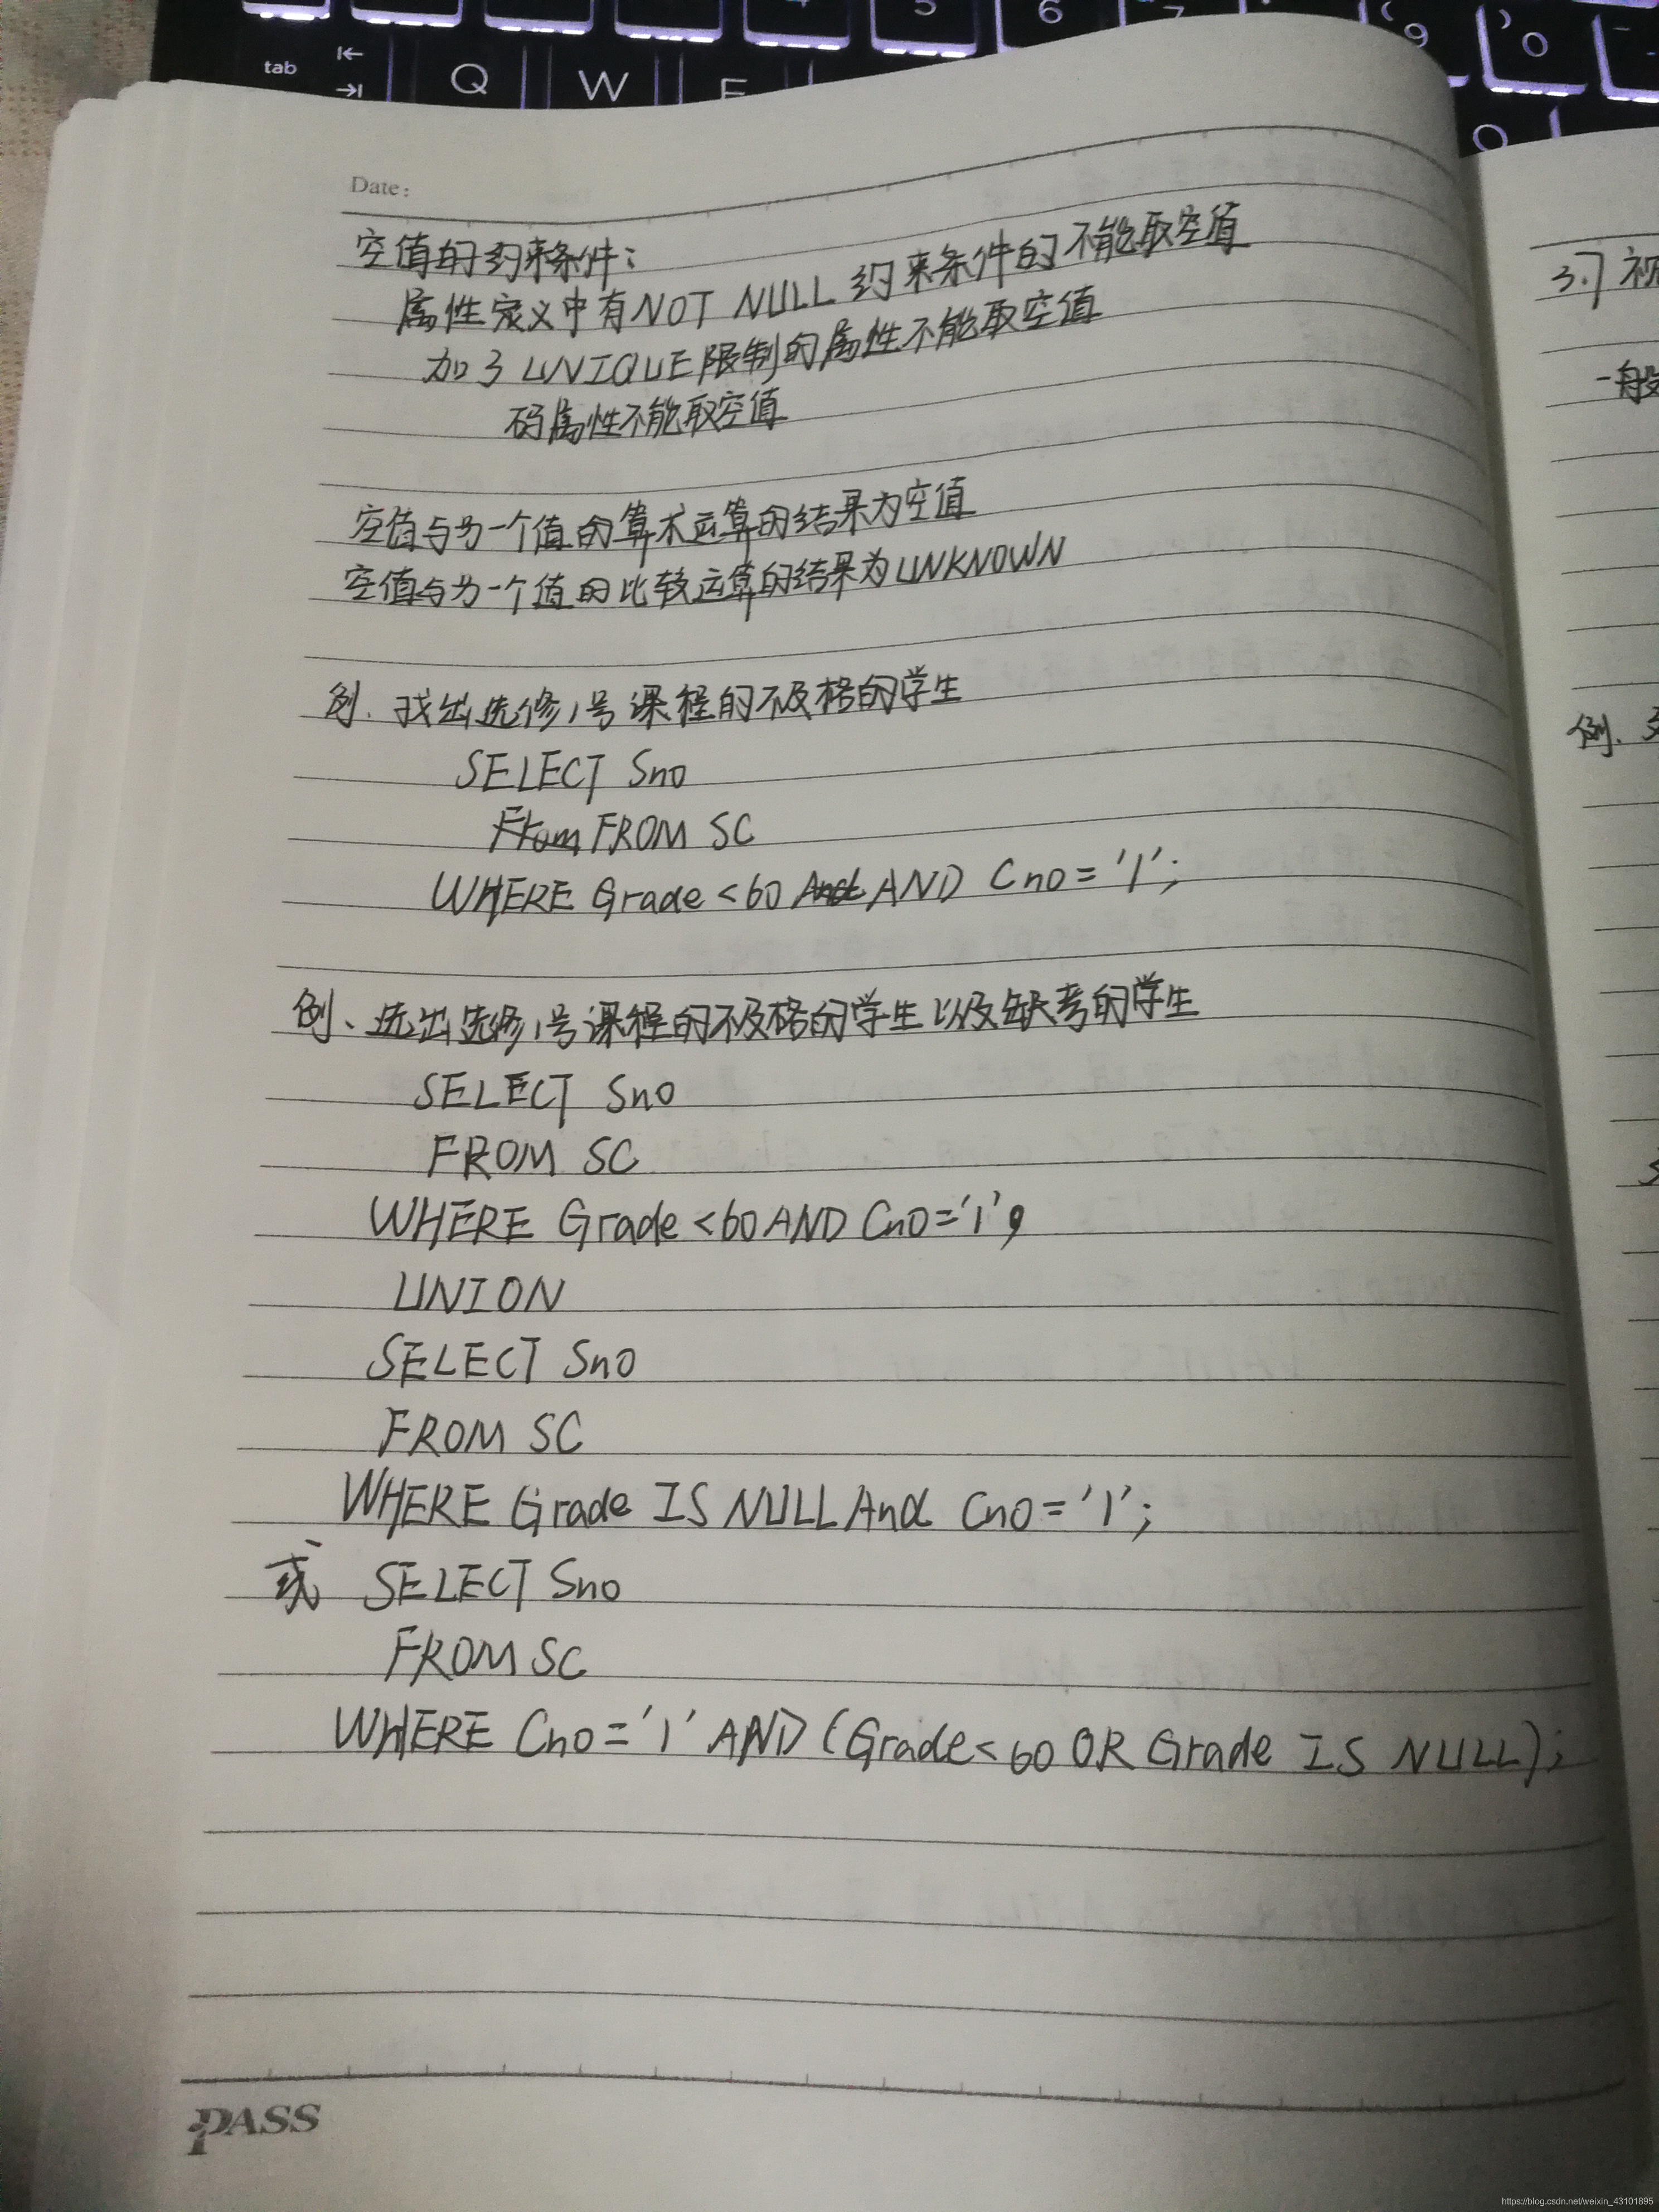 tab
Q
W
5
6
7
9
0
Date:
空值的约束条件:
属性定义中有NOT NULL 约束条件的不能取空值
加了UNIQUE限制的属性不能取空值
码属性不能取空值
空值与另一个值的算术运算的结果为空值
空值与另一个值的比较运算的结果为UNKNOWN
例. 找出选修1号课程的不及格的学生
SELECT Sno
From FROM SC
WHERE Grade<60 And AND Cno='1';
例、选出选修1号课程的不及格的学生以及缺考的学生
SELECT Sno
FROM SC
WHERE Grade<60 AND Cno='1'
UNION
SELECT Sno
FROM SC
WHERE Grade IS NULL And Cno='1';
或 SELECT Sno
FROM SC
WHERE Cno='1' AND (Grade<60 OR Grade IS NULL);
PASS
3.7 视
一般
例.
https://blog.csdn.net/weixin_43101895